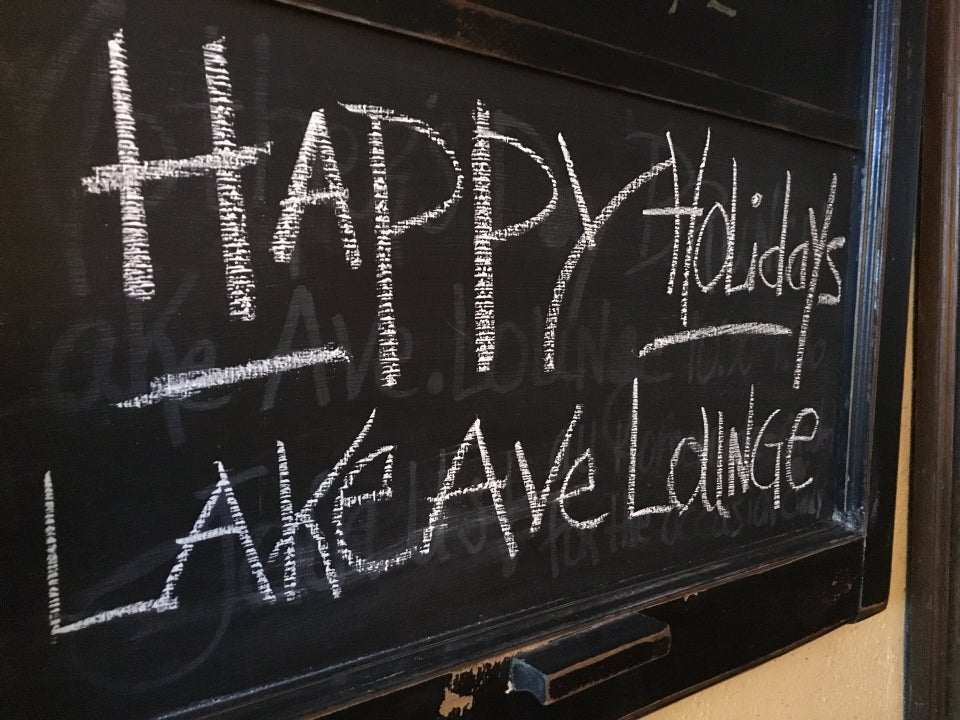 HAPPY Holidays
LAKe Ave LOUNGe